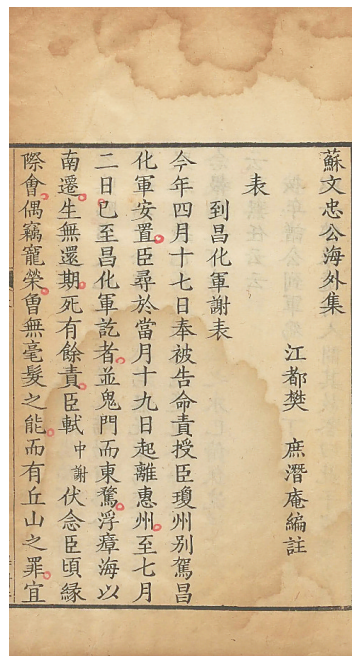 蘇文忠公海外集
江都樊 庶潛庵編註
表
到昌化軍謝表
今年四月十七日奉被告命責授臣瓊州別駕昌
化軍安置臣尋於當月十九日起離惠州至七月
二日已至昌化軍訖者並鬼門而東騖浮瘴海以
南遷生無還期死有餘責臣軾中謝伏念臣頃緣
際會偶竊寵榮曾無毫髮之能而有丘山之罪宜